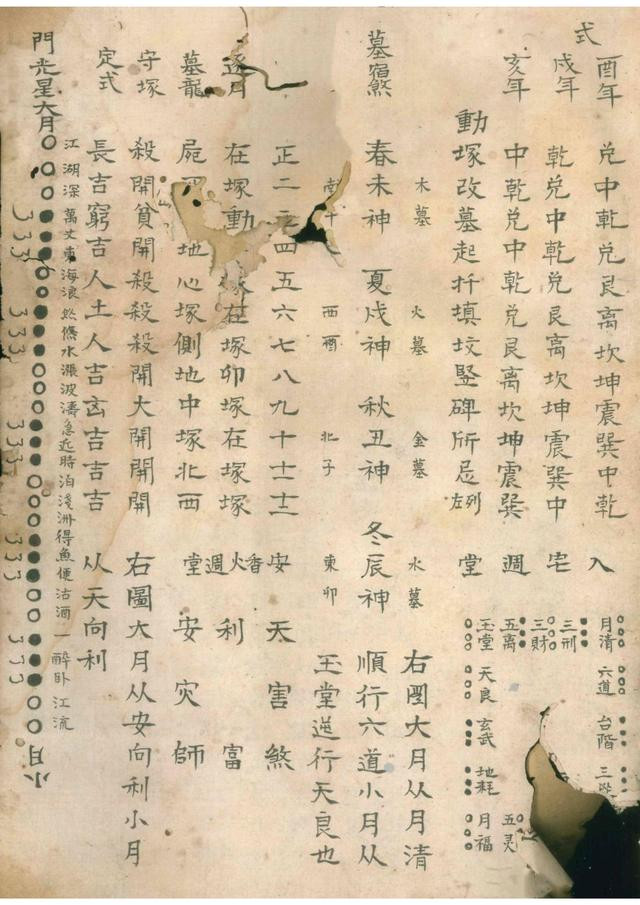 式
酉年 兌中乾兌艮离坎坤震巽中乾
戌年 乾兌中乾兌艮离坎坤震巽中
亥年 中乾兌中乾兌艮离坎坤震巽
動塚改墓起扦填坟竪碑所忌左列
木墓 火墓 金墓 水墓
墓宿煞 春未神 夏戌神 秋丑神 冬辰神
南午 西酉 北子 東卯
正二三四五六七八九十十一十二
逐月 在塚動 在塚卯塚在塚塚
墓龍 屍 地心塚側地中塚北西
守塚 殺開貧開殺殺殺開大開開開
定式 長吉窮吉人土人吉吉吉吉吉
入宅週堂
月清 六道 台階 三
三刑
三財
五离 五灵
玉堂 天良 玄武 地耗 月福
右圖大月从月清
順行六道小月从
玉堂逆行天良也
安香火週堂
天利安
害富灾
煞師
右圖大月从安向利小月
从天向利
江湖深萬丈東海浪悠悠水漲波濤急近時泊淺洲得魚便沽酒一醉卧江流
門光星大月
小月